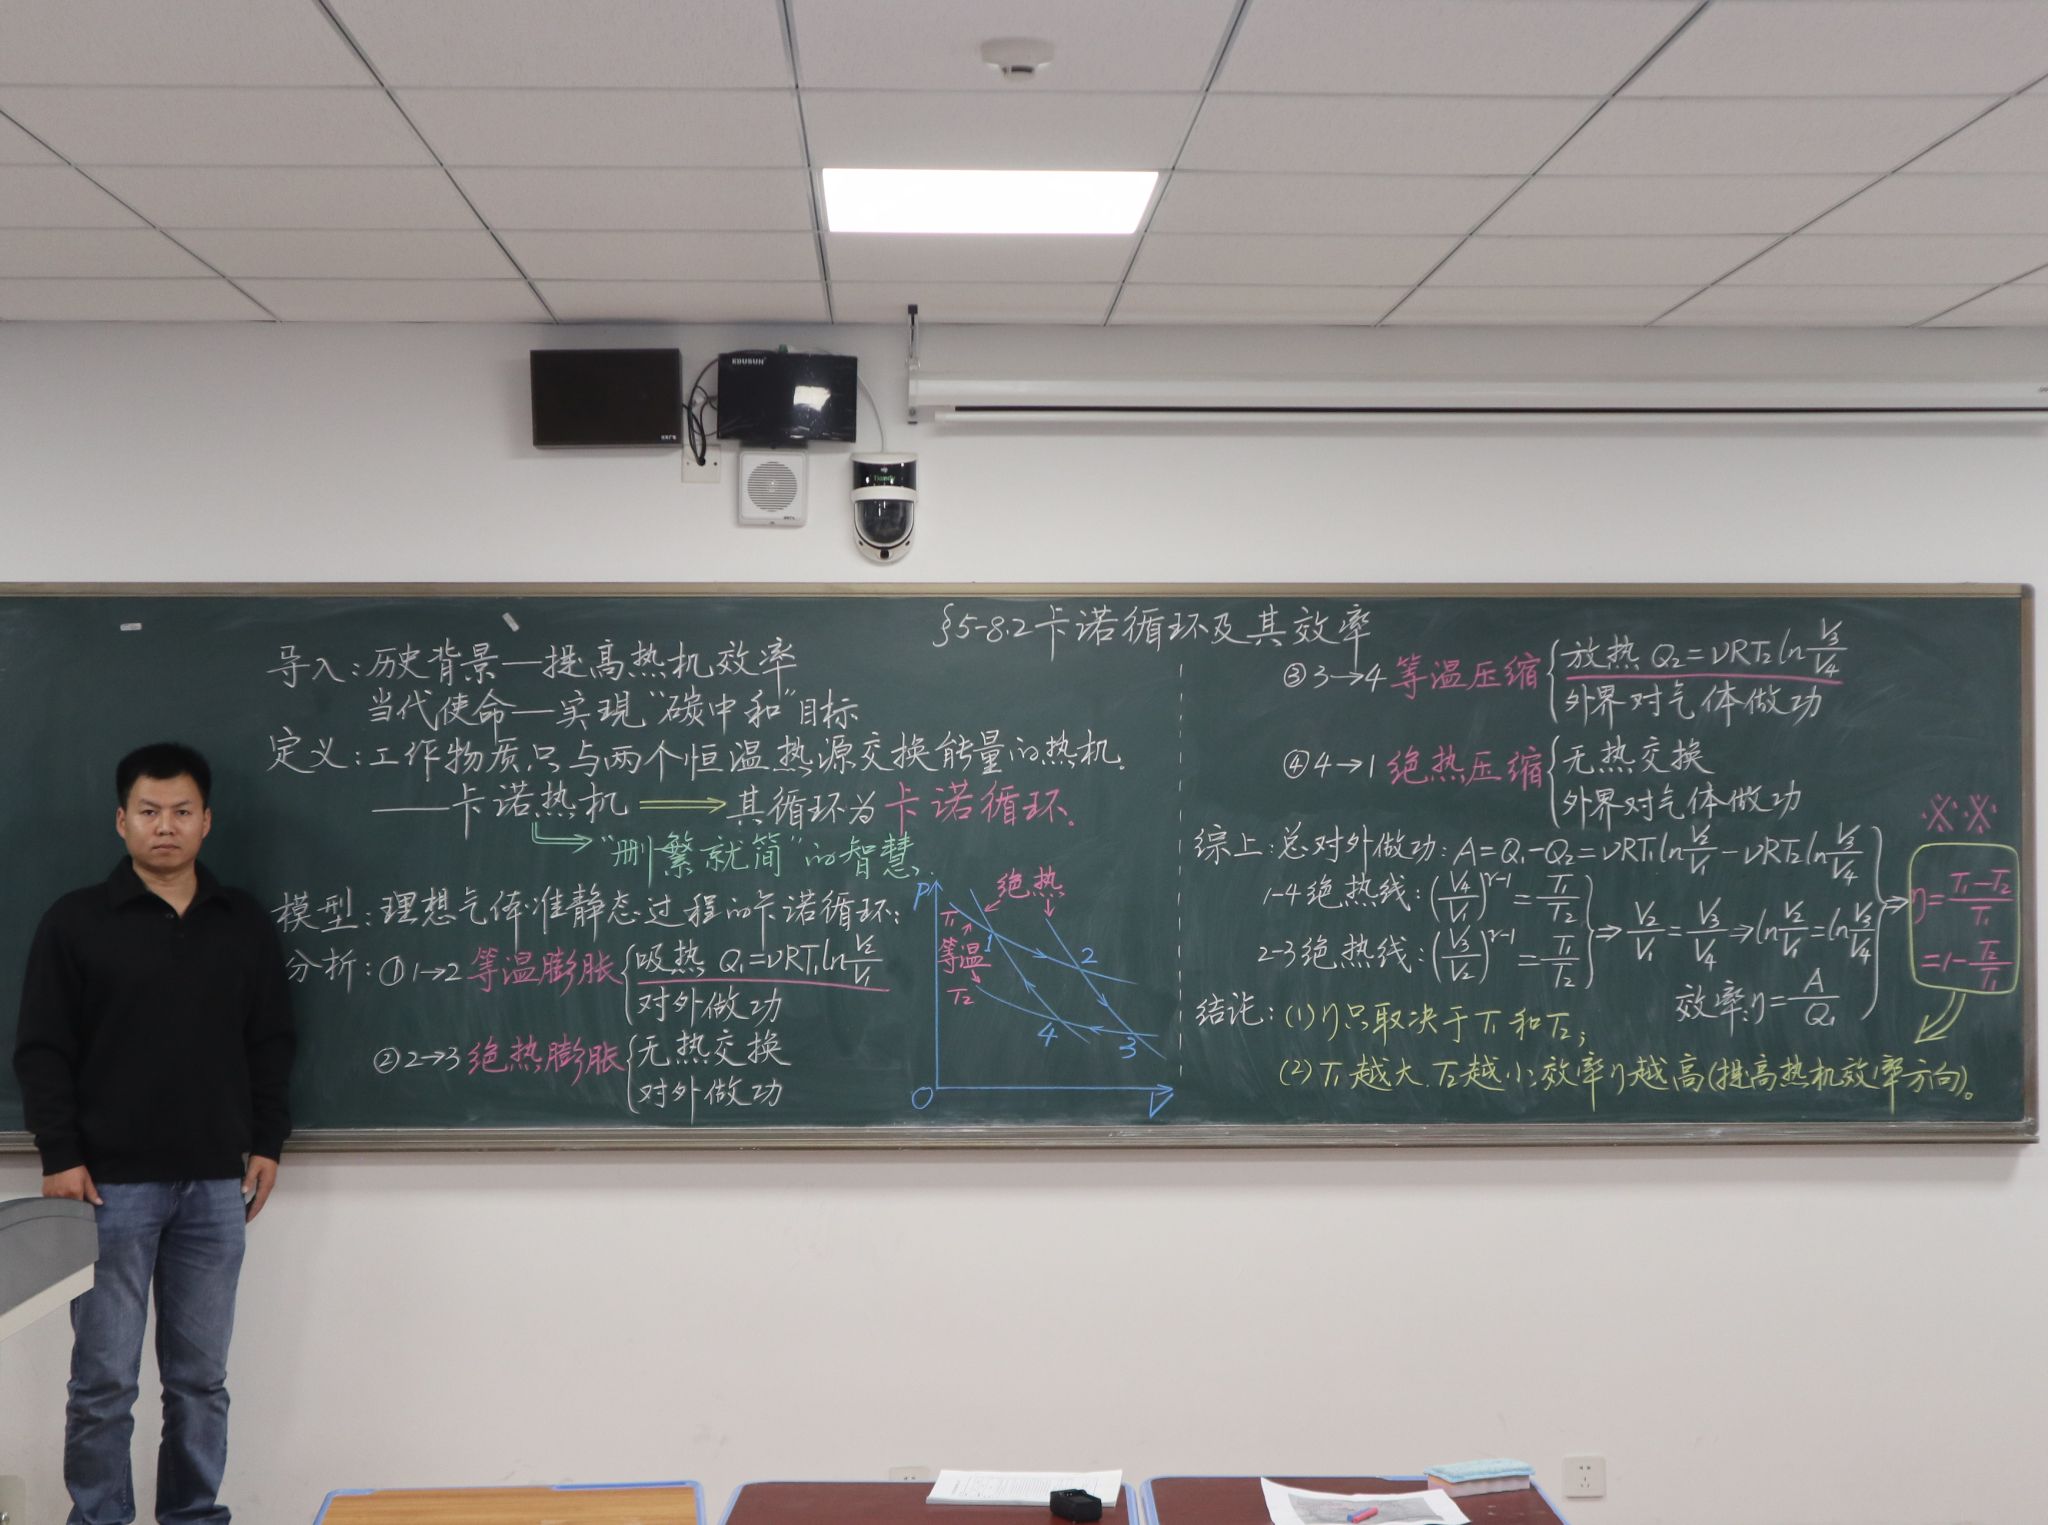 EDUSUN
Tiandy
§5-8.2卡诺循环及其效率
导入:历史背景—提高热机效率
当代使命—实现“碳中和”目标
定义:工作物质只与两个恒温热源交换能量的热机.
——卡诺热机 ⟹ 其循环为卡诺循环.
“删繁就简”的智慧.
模型:理想气体准静态过程的卡诺循环:
分析:①1→2 等温膨胀{吸热 Q₁=νRT₁ln V₂/V₁
对外做功
②2→3 绝热膨胀{无热交换
对外做功
P
绝热
T₁
等温
T₂
1
2
4
3
O
V
③3→4 等温压缩{放热 Q₂=νRT₂ln V₃/V₄
外界对气体做功
④4→1 绝热压缩{无热交换
外界对气体做功
综上:总对外做功:A=Q₁-Q₂=νRT₁ln V₂/V₁-νRT₂ln V₃/V₄
1-4绝热线:(V₄/V₁)^(γ-1)=T₁/T₂
2-3绝热线:(V₃/V₂)^(γ-1)=T₁/T₂ } ⇒ V₂/V₁=V₃/V₄ ⇒ ln V₂/V₁=ln V₃/V₄
效率:η=A/Q₁
※※
η=(T₁-T₂)/T₁
=1-T₂/T₁
结论:(1)η只取决于T₁和T₂;
(2)T₁越大.T₂越小.效率η越高(提高热机效率方向)。